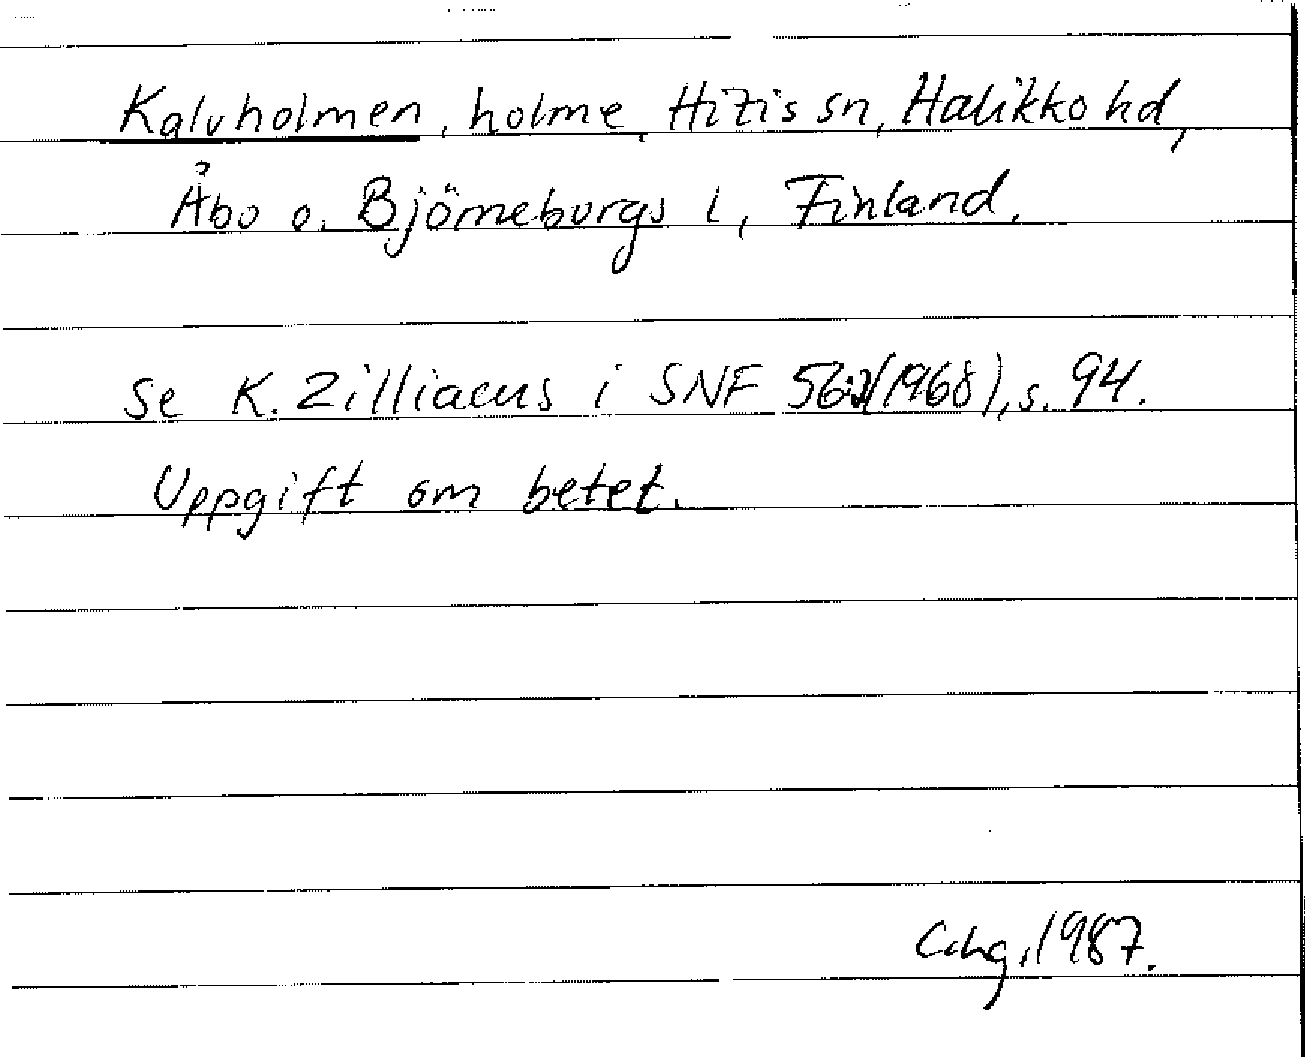 Kalvholmen, holme, Hitis sn, Halikko hd,
Åbo o. Björneborgs l, Finland.
Se K. Zilliacus i SNF 56:2 (1968), s. 94.
Uppgift om betet.
1987.